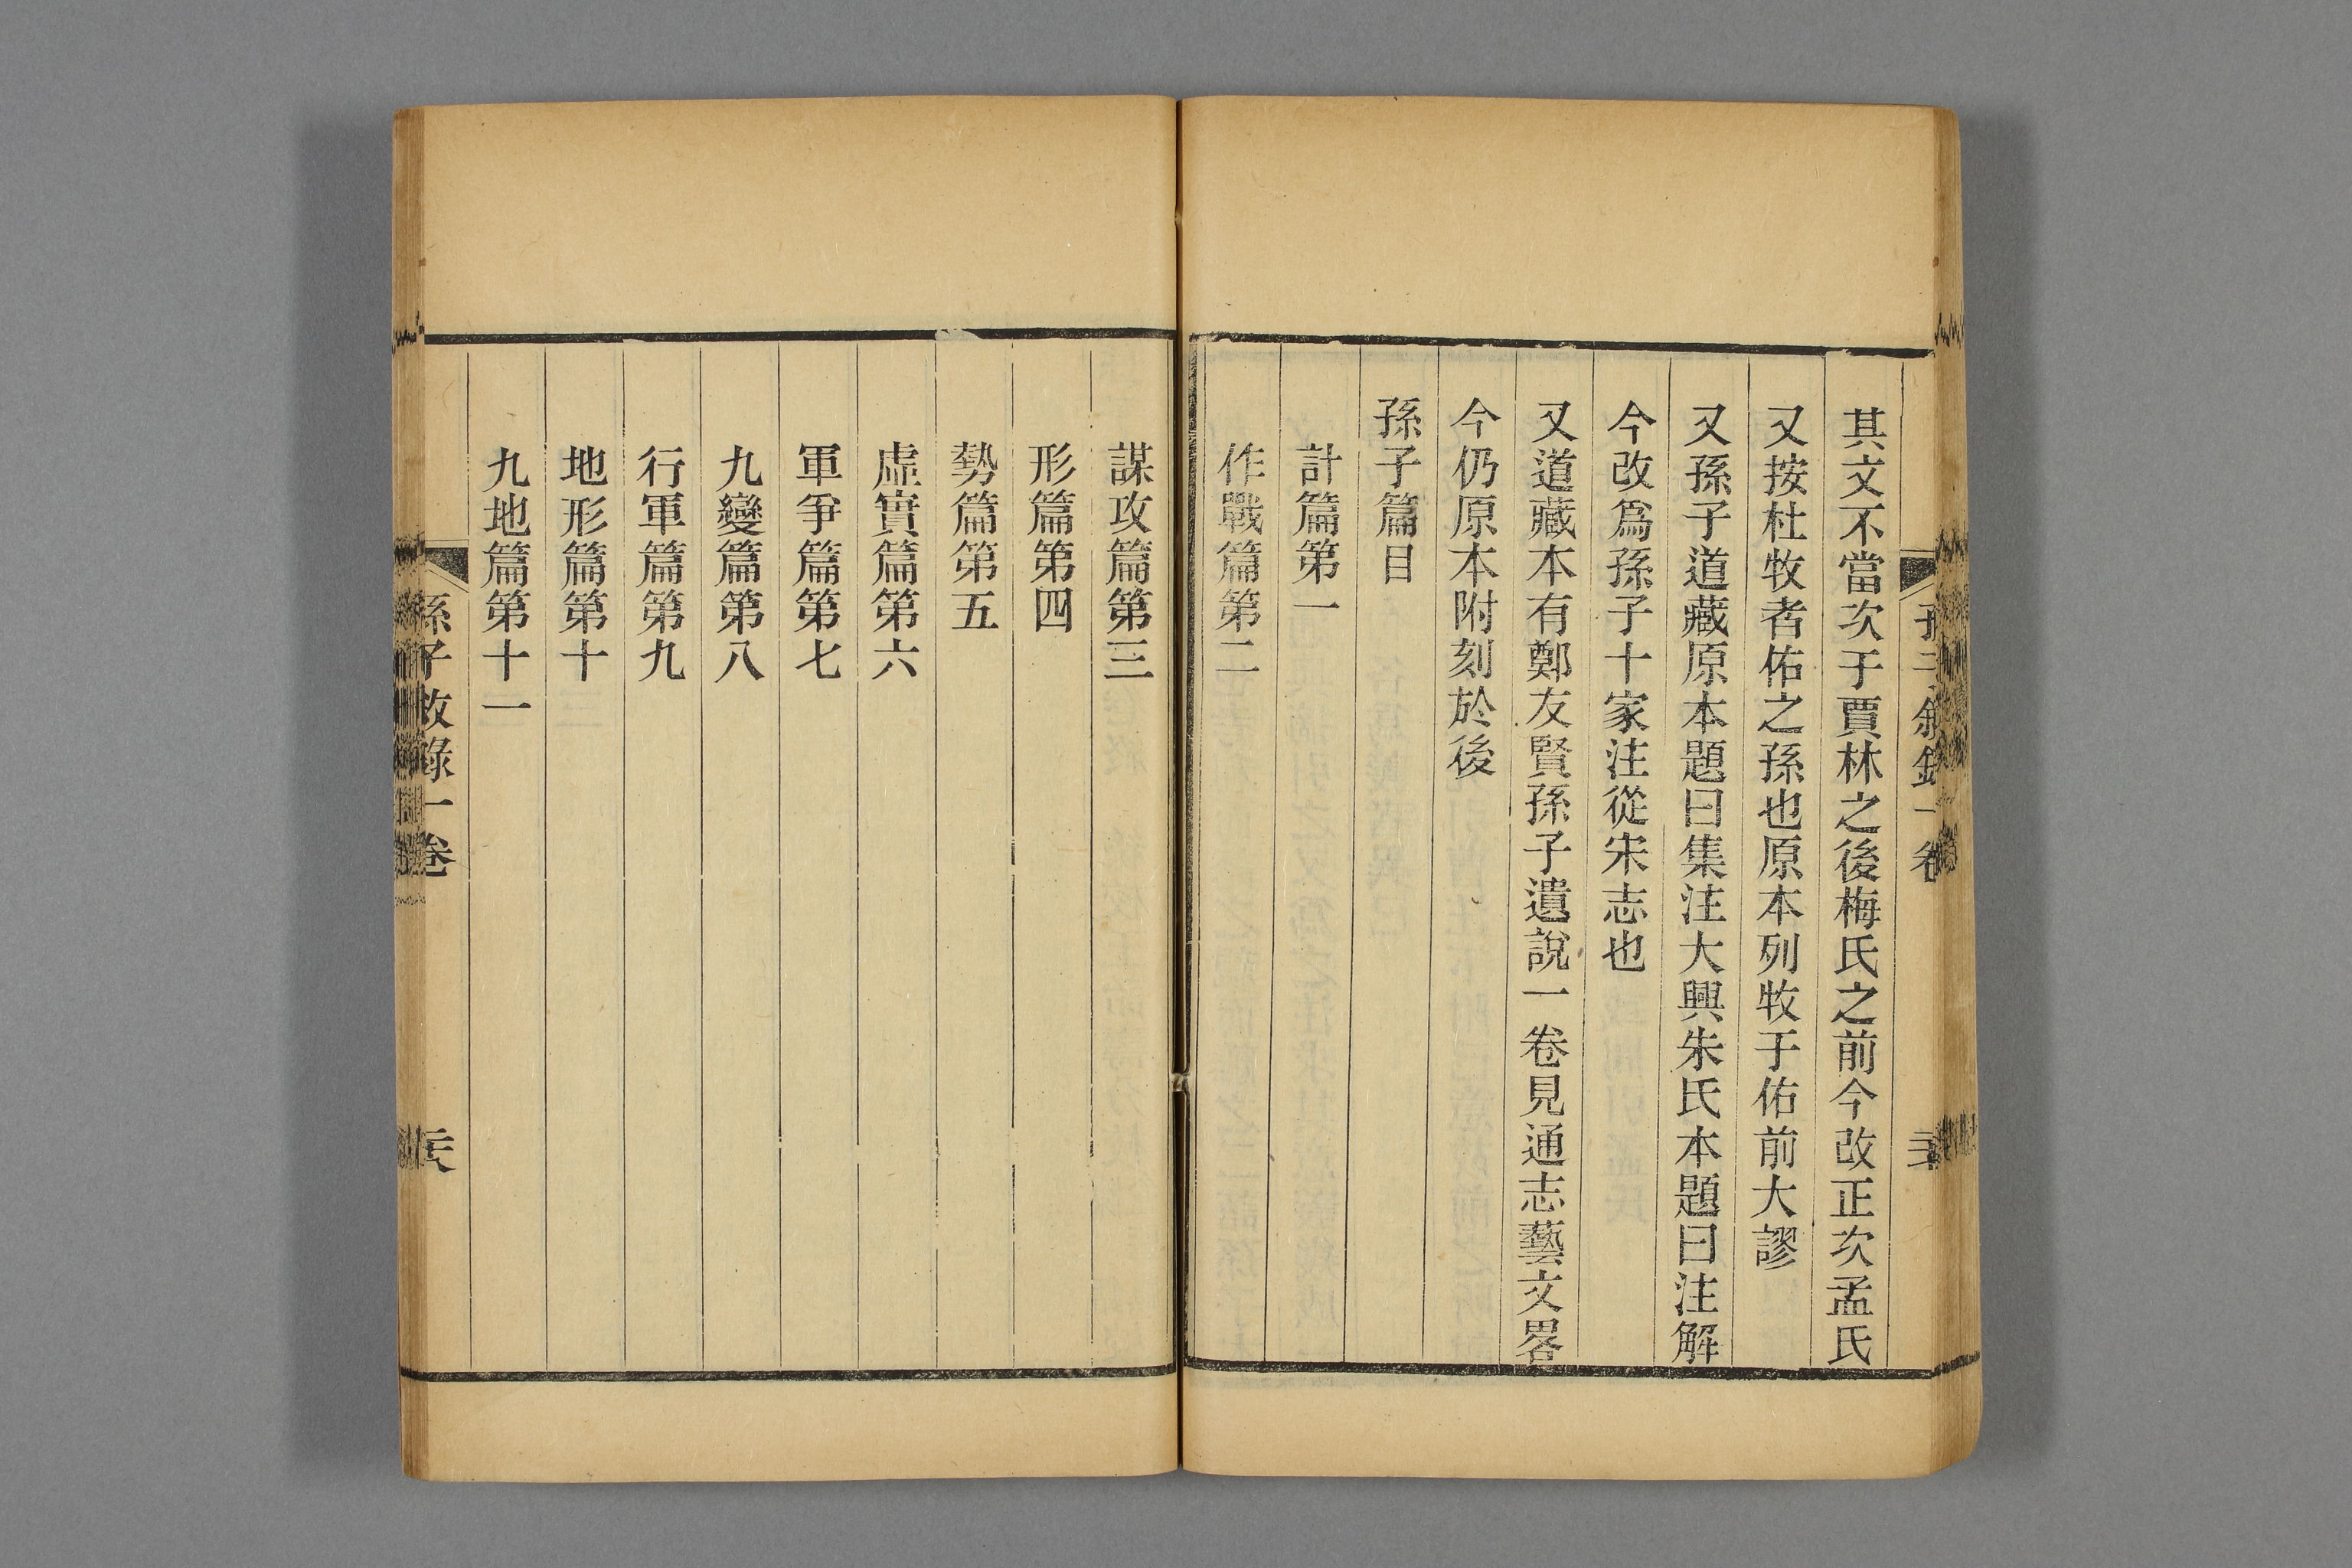 其文不當次于賈林之後梅氏之前今改正次孟氏
又按杜牧者佑之孫也原本列牧于佑前大謬
又孫子道藏原本題曰集注大興朱氏本題曰注解
今改爲孫子十家注從宋志也
又道藏本有鄭友賢孫子遺說一卷見通志藝文畧
今仍原本附刻於後
孫子篇目
計篇第一
作戰篇第二
謀攻篇第三
形篇第四
勢篇第五
虛實篇第六
軍爭篇第七
九變篇第八
行軍篇第九
地形篇第十
九地篇第十一
孫子敘錄一卷